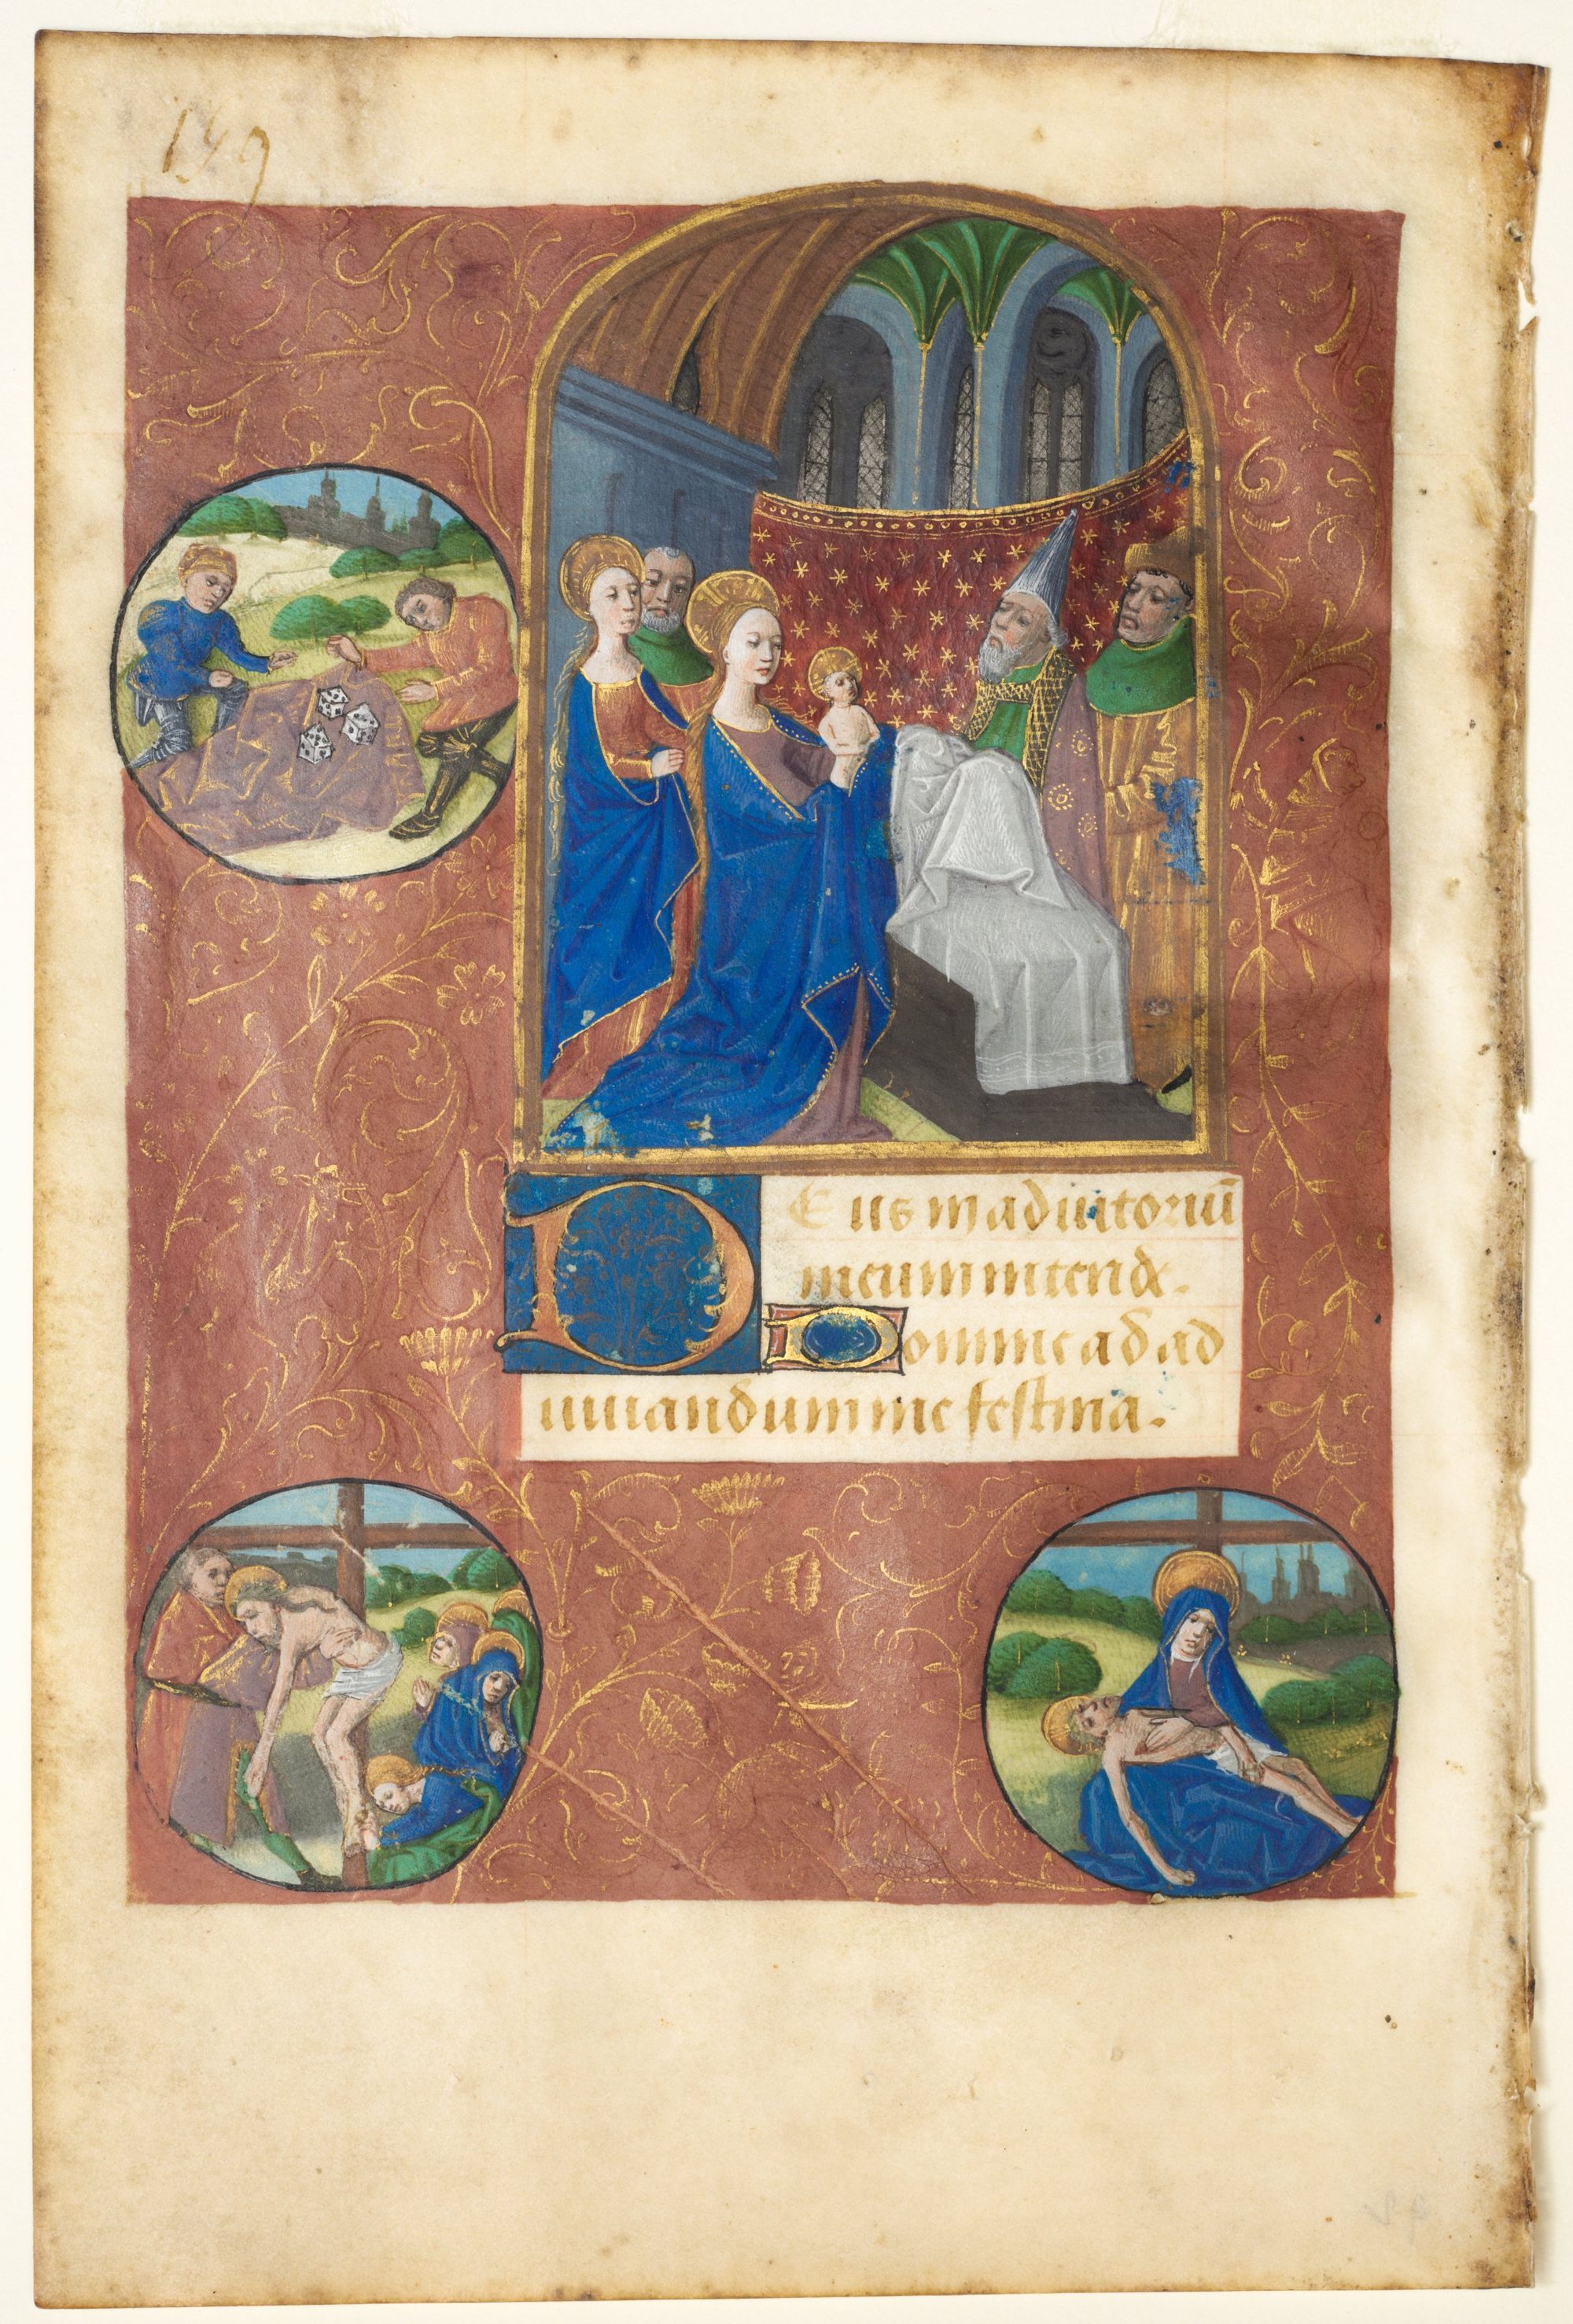 159
Deus in adiutoriū
meum intende.
Domine ad ad
iuuandum me festina.
92